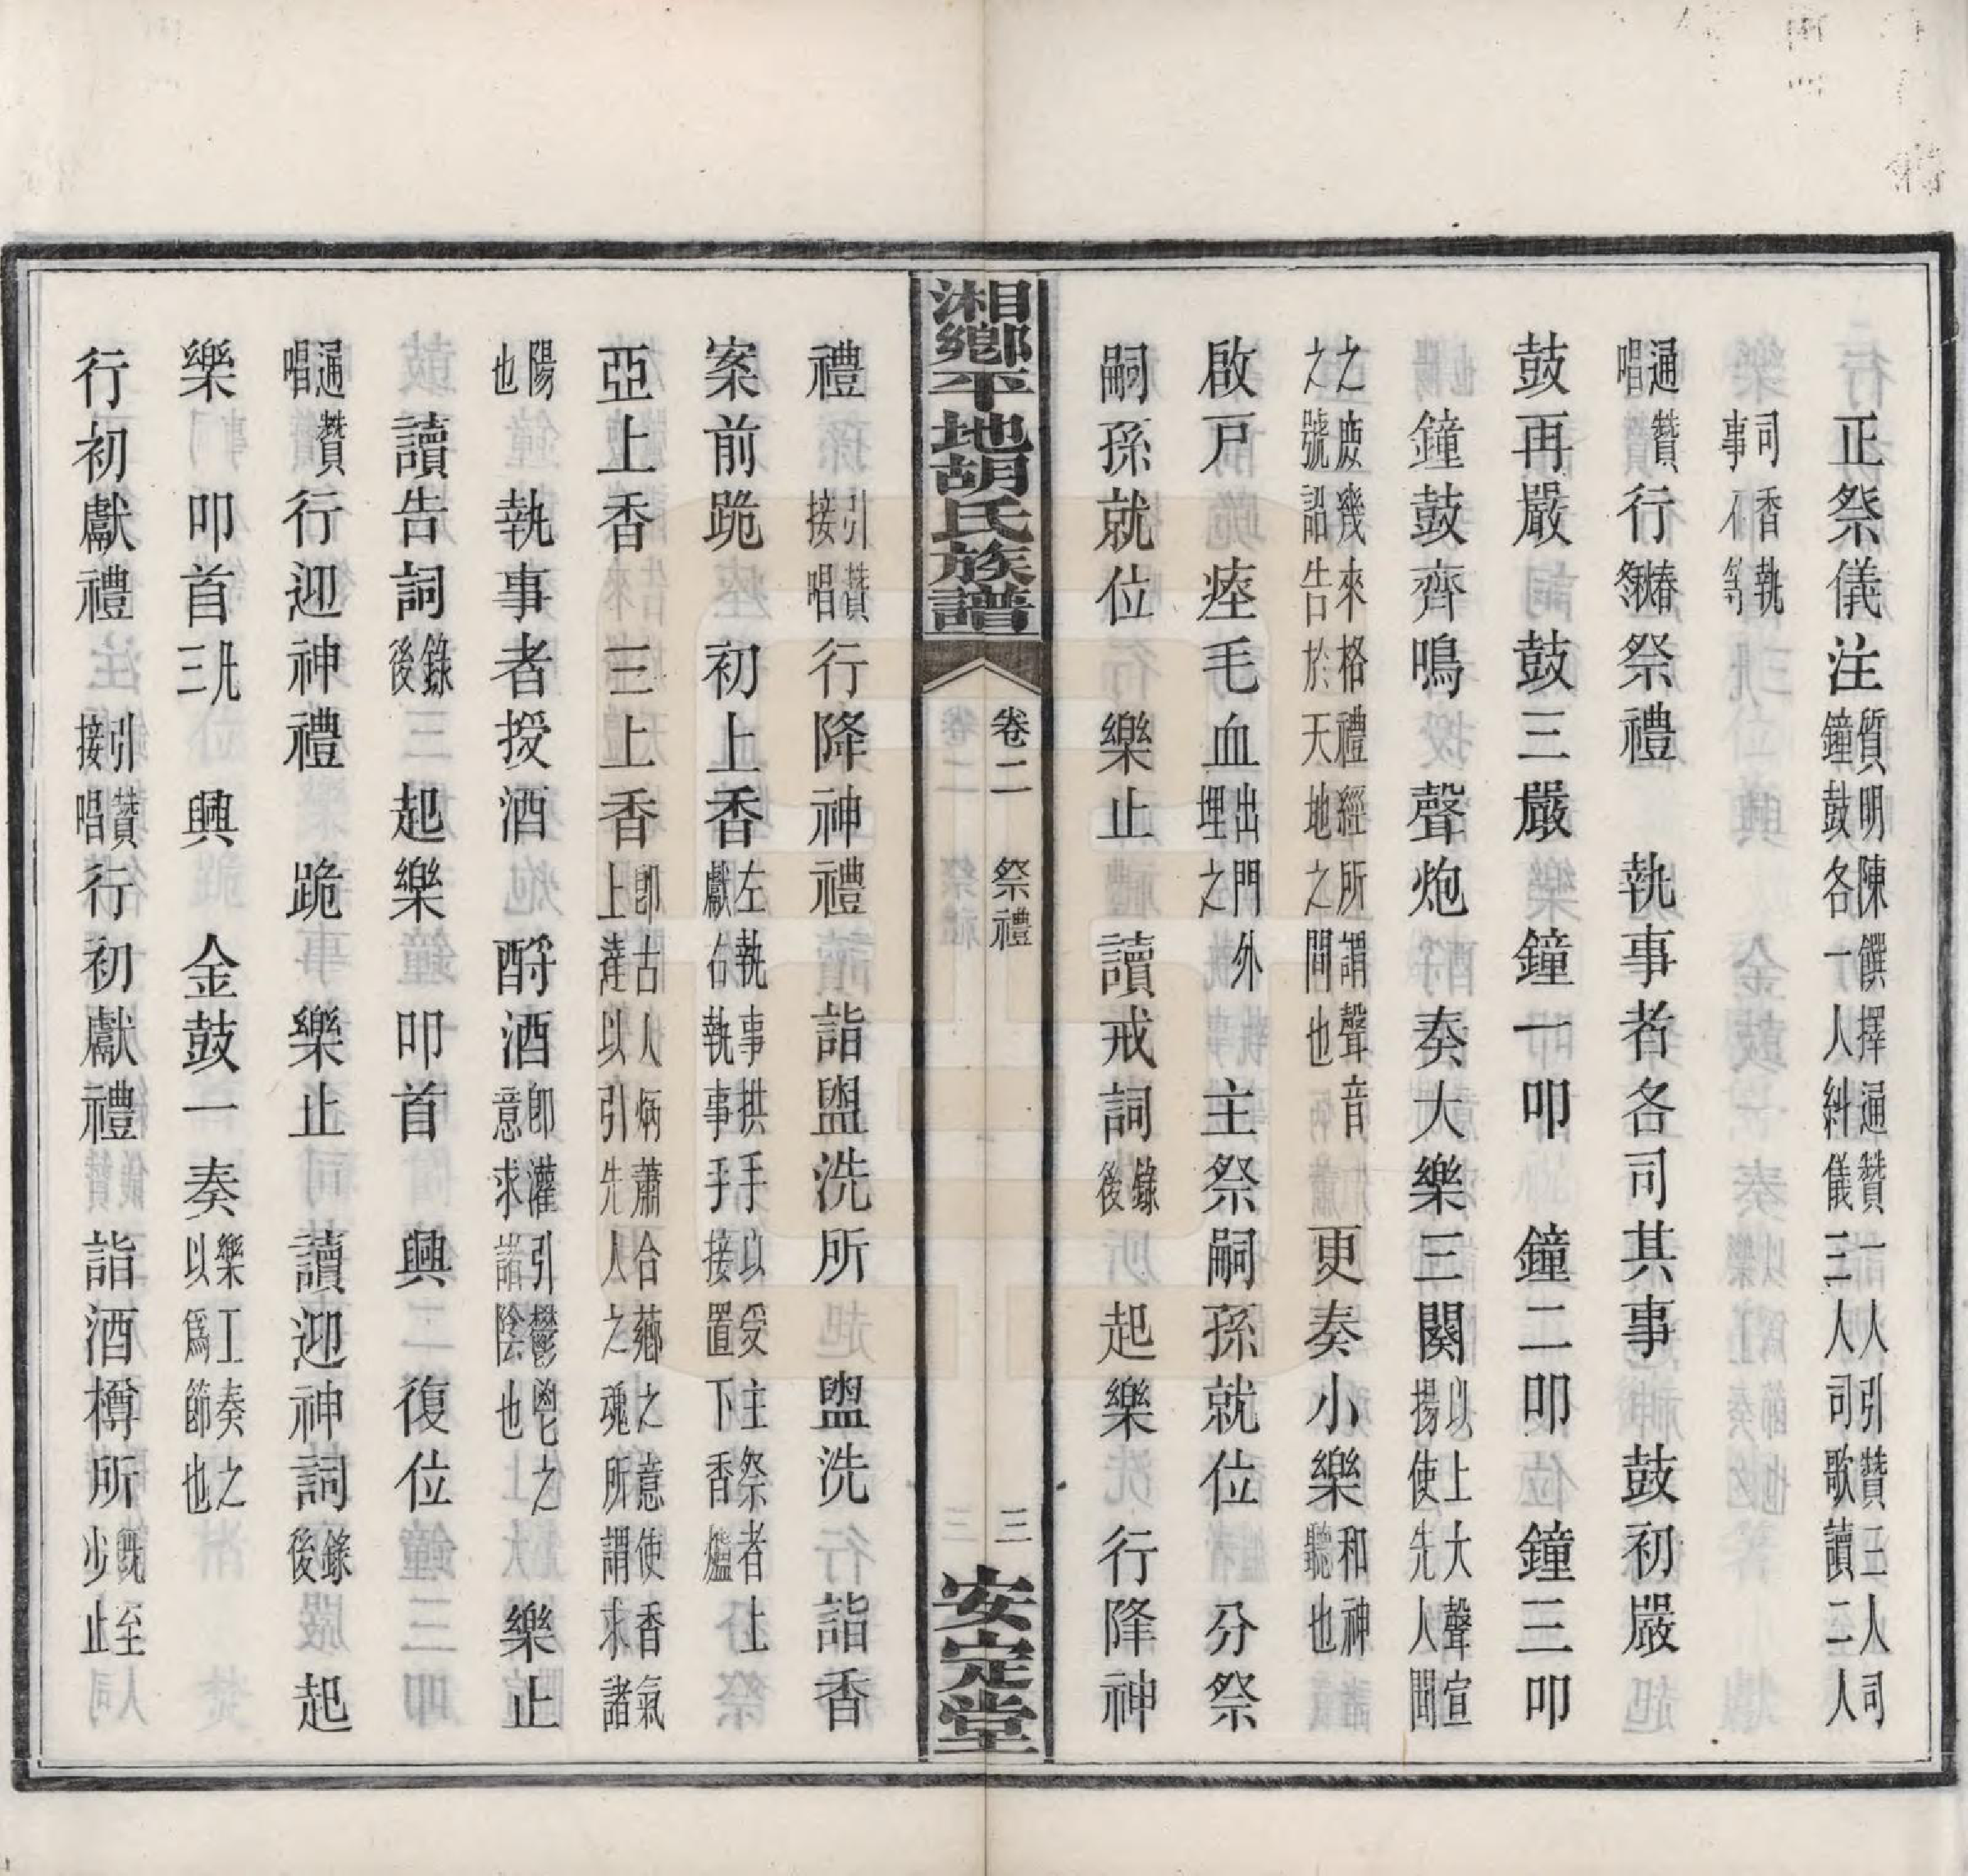 正祭儀注質明陳饌擇通贊一人引贊三人司鐘鼓各一人糾儀三人司歌讀二人
司香執事不等
通贊唱行春秋祭祭禮　執事者各司其事　鼓初嚴
鼓再嚴　鼓三嚴　鐘一叩　鐘二叩　鐘三叩
鐘鼓齊鳴　聲炮　奏大樂三闋以上大聲宣揚使先人聞
之庶幾來格禮經所謂聲音之號詔告於天地之間也　更奏小樂和神聽也
啟戸　瘞毛血出門外埋之　主祭嗣孫就位　分祭
嗣孫就位　樂止　讀戒詞錄後　起樂　行降神
湘鄉平地胡氏族譜　卷二　祭禮　三　安定堂
禮　引贊接唱行降神禮　詣盥洗所　盥洗　詣香
案前跪　初上香左執事拱手以受主祭者上獻右執事手接置下香爐
亞上香　三上香卽古人焫蕭合薌之意使香氣上達以引先人之魂所謂求諸
陽也　執事者授酒　酹酒卽灌引鬱鬯之意求諸陰也　樂止
讀告詞錄後　起樂　叩首　興　復位
通贊唱行迎神禮　跪　樂止　讀迎神詞錄後　起
樂　叩首三凡　興　金鼓一奏樂工奏之以爲節也
行初獻禮　引贊接唱行初獻禮　詣酒樽所旣至少止